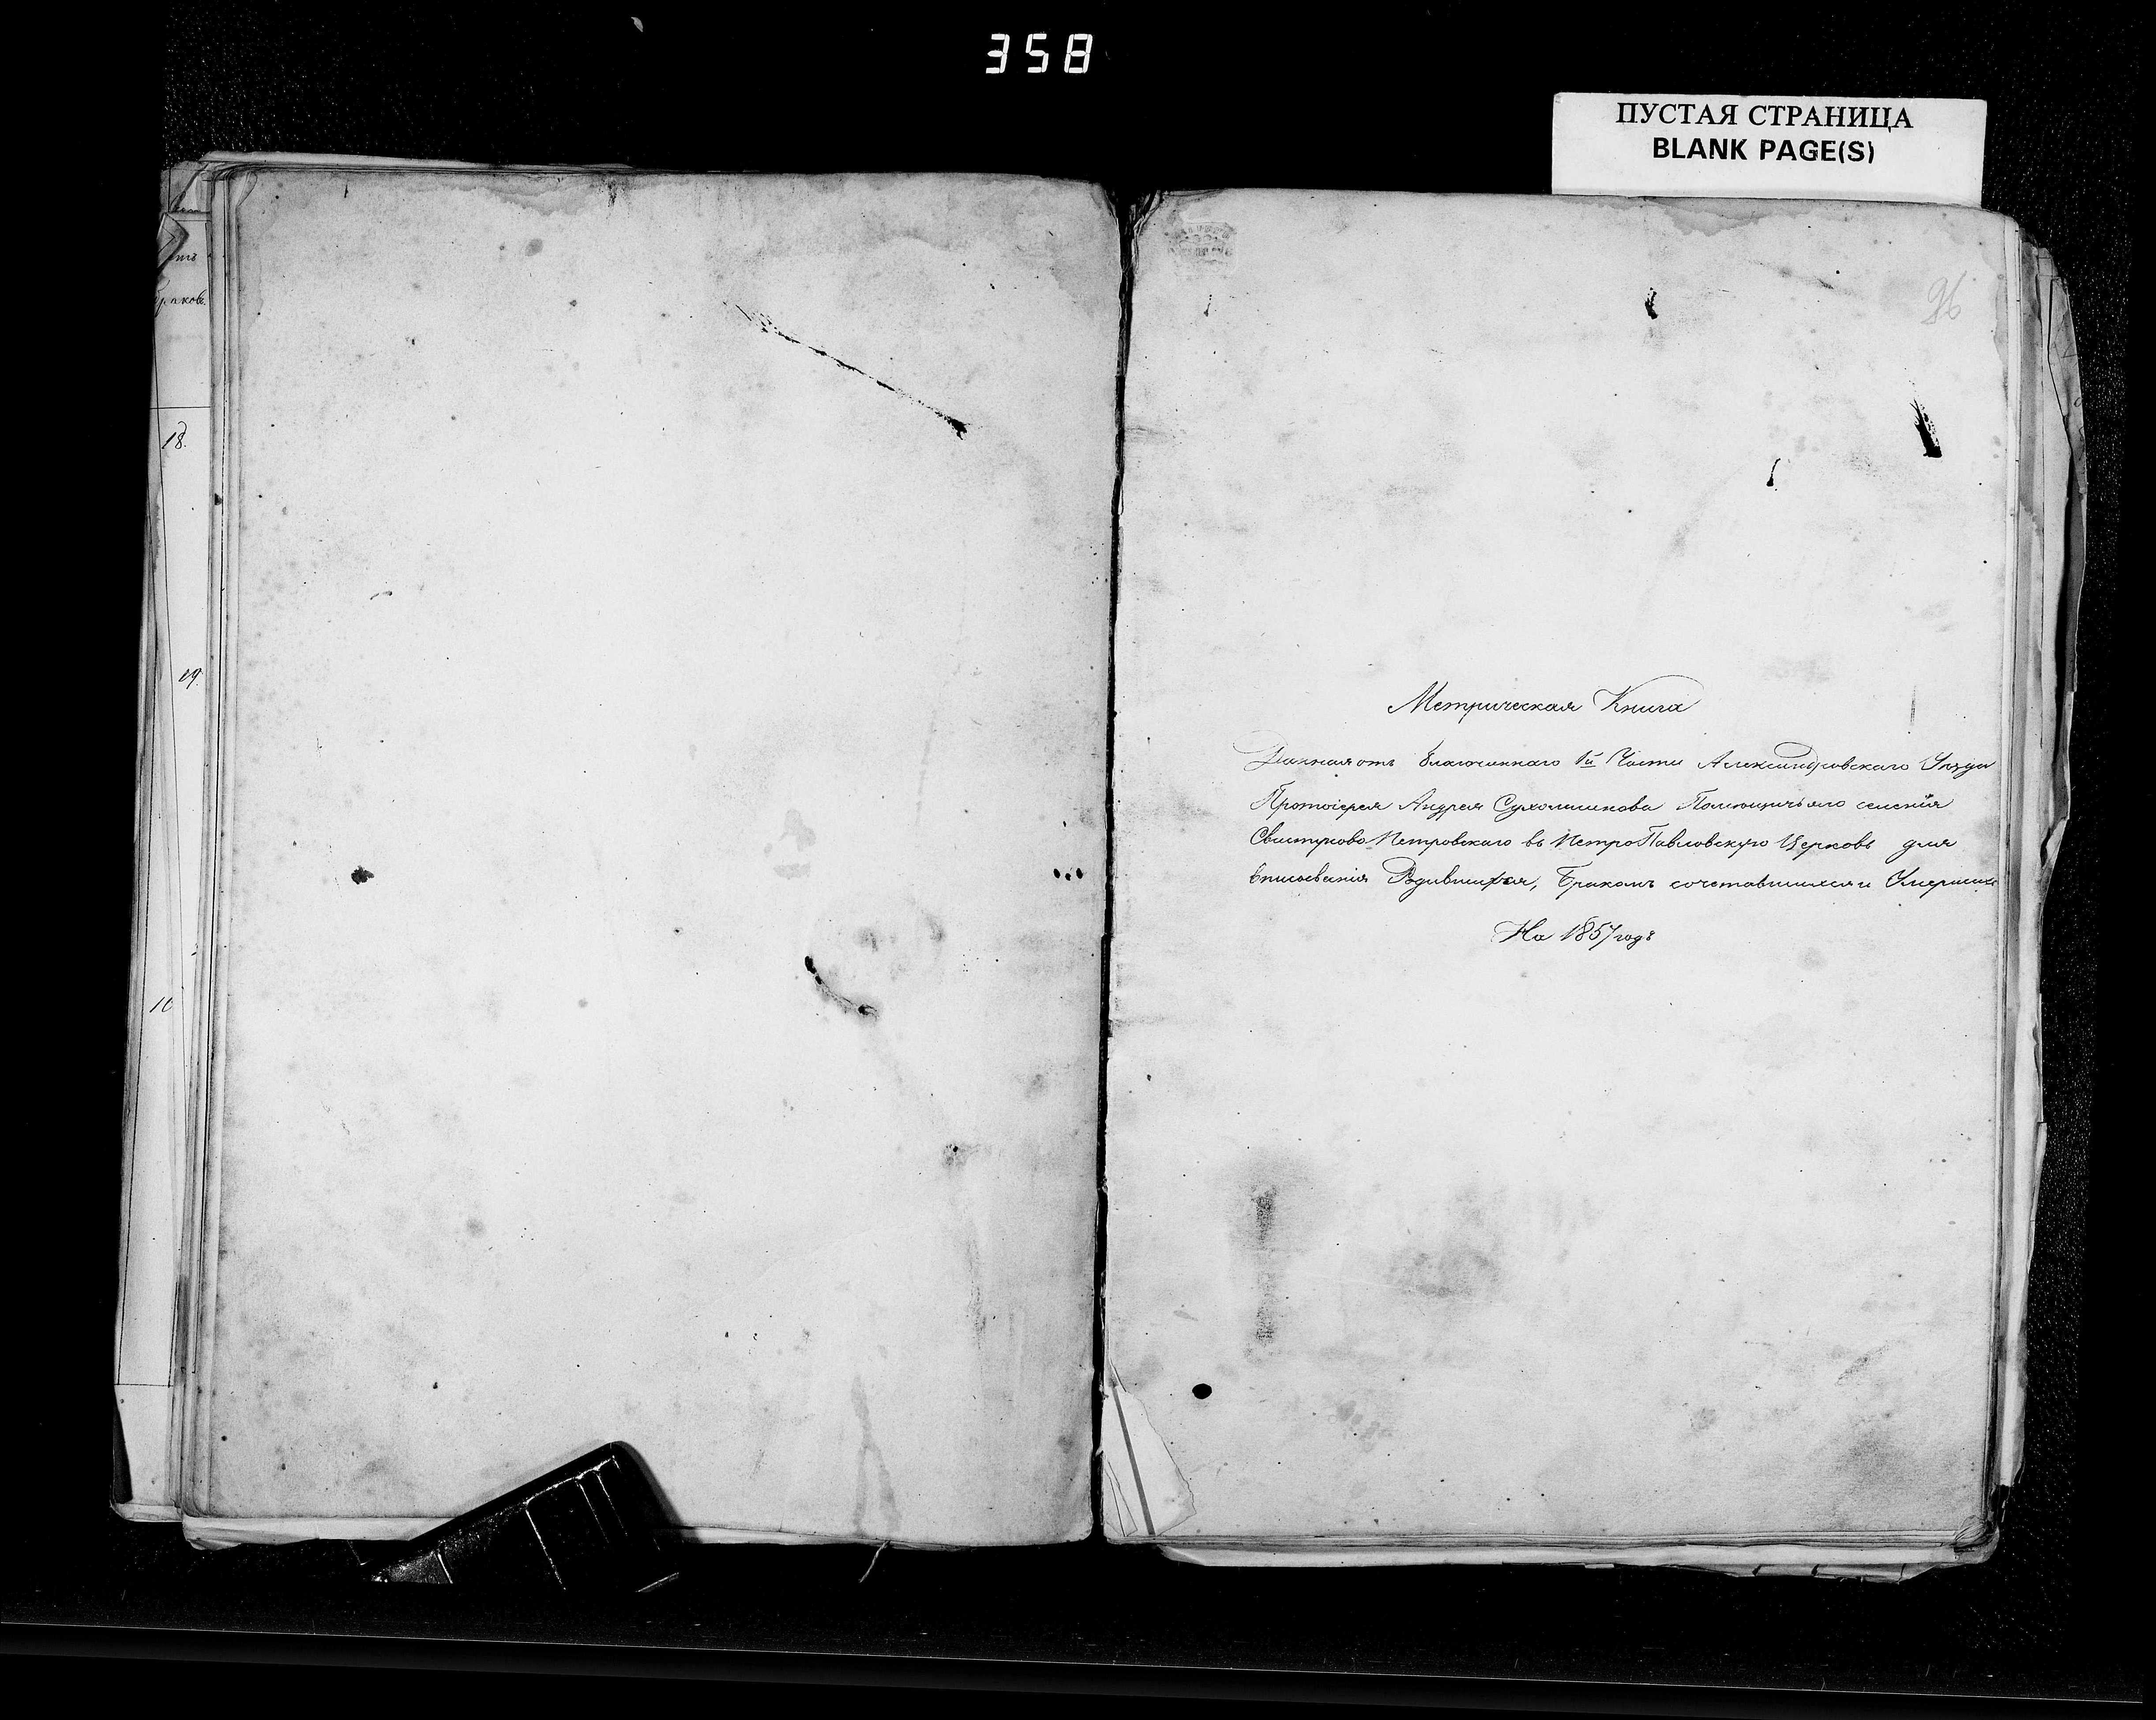 358
ПУСТАЯ СТРАНИЦА
BLANK PAGE(S)
96
браковъ.
18.
19.
Метрическая Книга
Данная отъ Благочиннаго 1й Части Александровскаго Уѣзда
Протоіерея Андрея Сухомлинова Помѣщичьяго селенія
Свистуново Петровскаго въ ПетроПавловскую Церковь для
вписыванія Родившихся, Бракомъ сочетавшихся и Умершихъ
На 1857 годъ